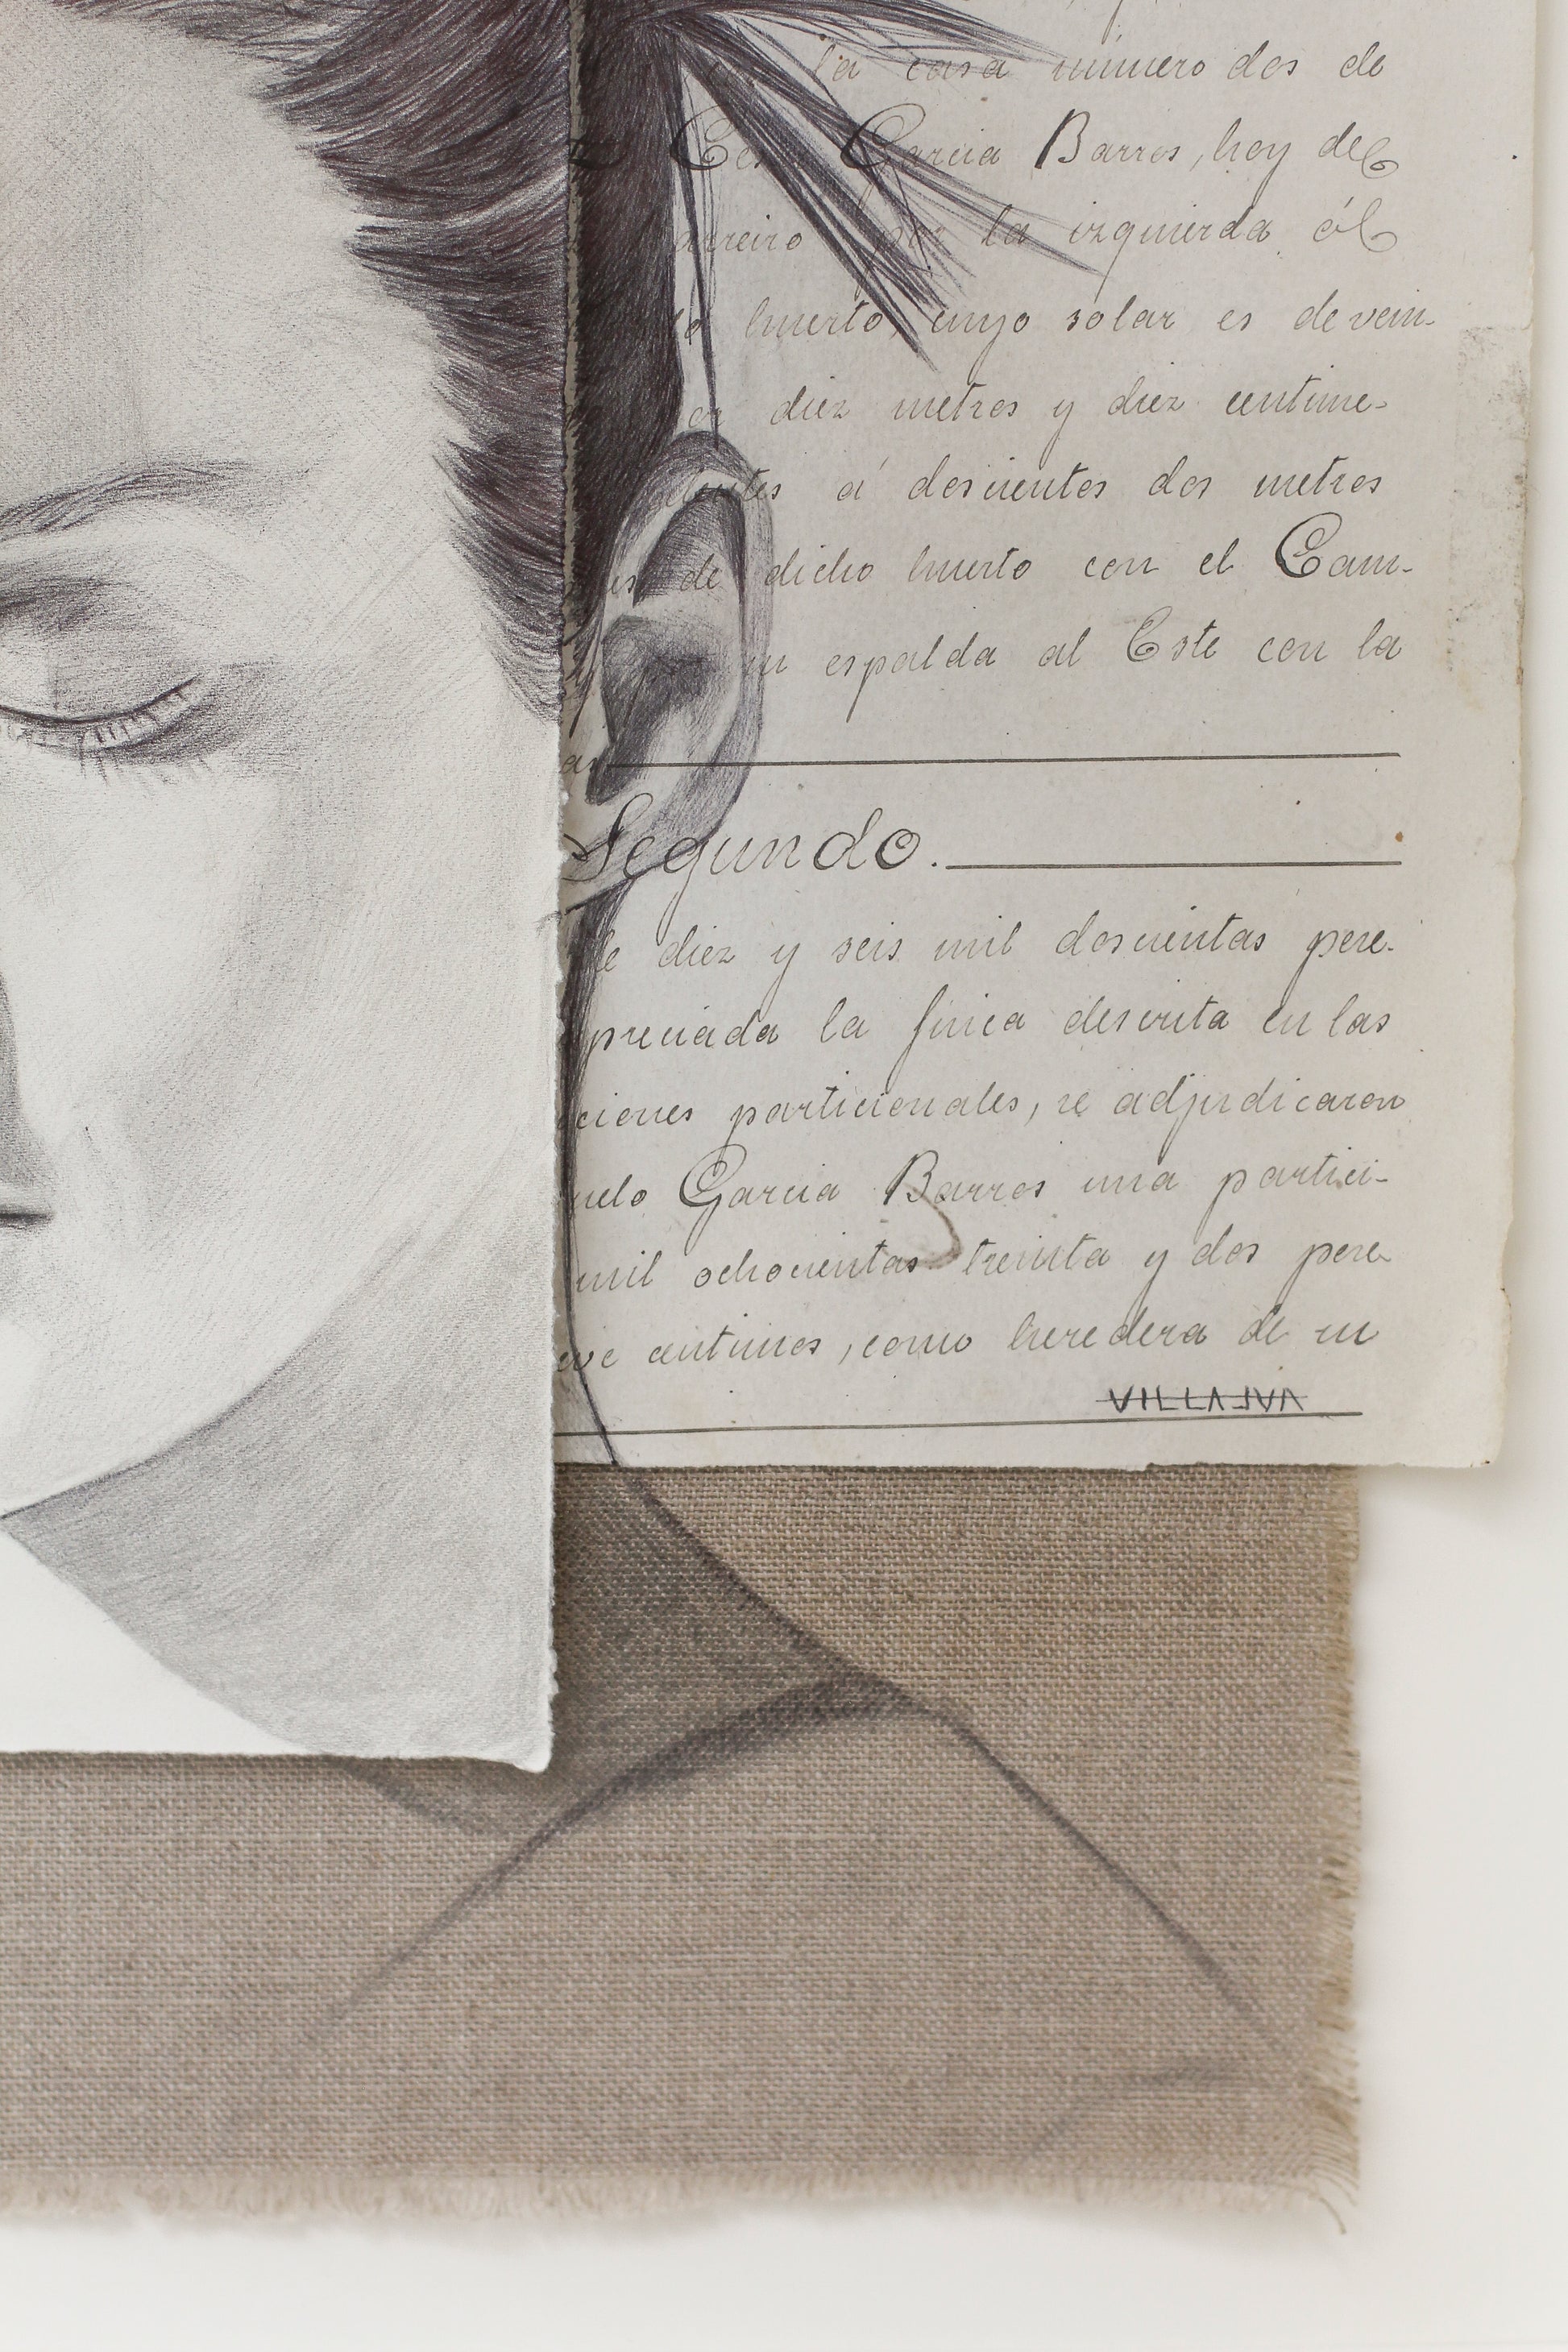 la casa número dos de
Garcia Barros, hoy del
arreiro por la izquierda ál
huerto, cuyo solar es de vein-
diez metros y diez centime-
á doscientos dos metros
de dicho huerto con el Cam-
espalda al Este con la
Segundo.
diez y seis mil doscientas pese-
preciada la finca descrita en las
ciones particionales, se adjudicaron
uelo Garcia Barros una partici-
mil ochocientas treinta y dos pese-
eve centimos, como heredera de su